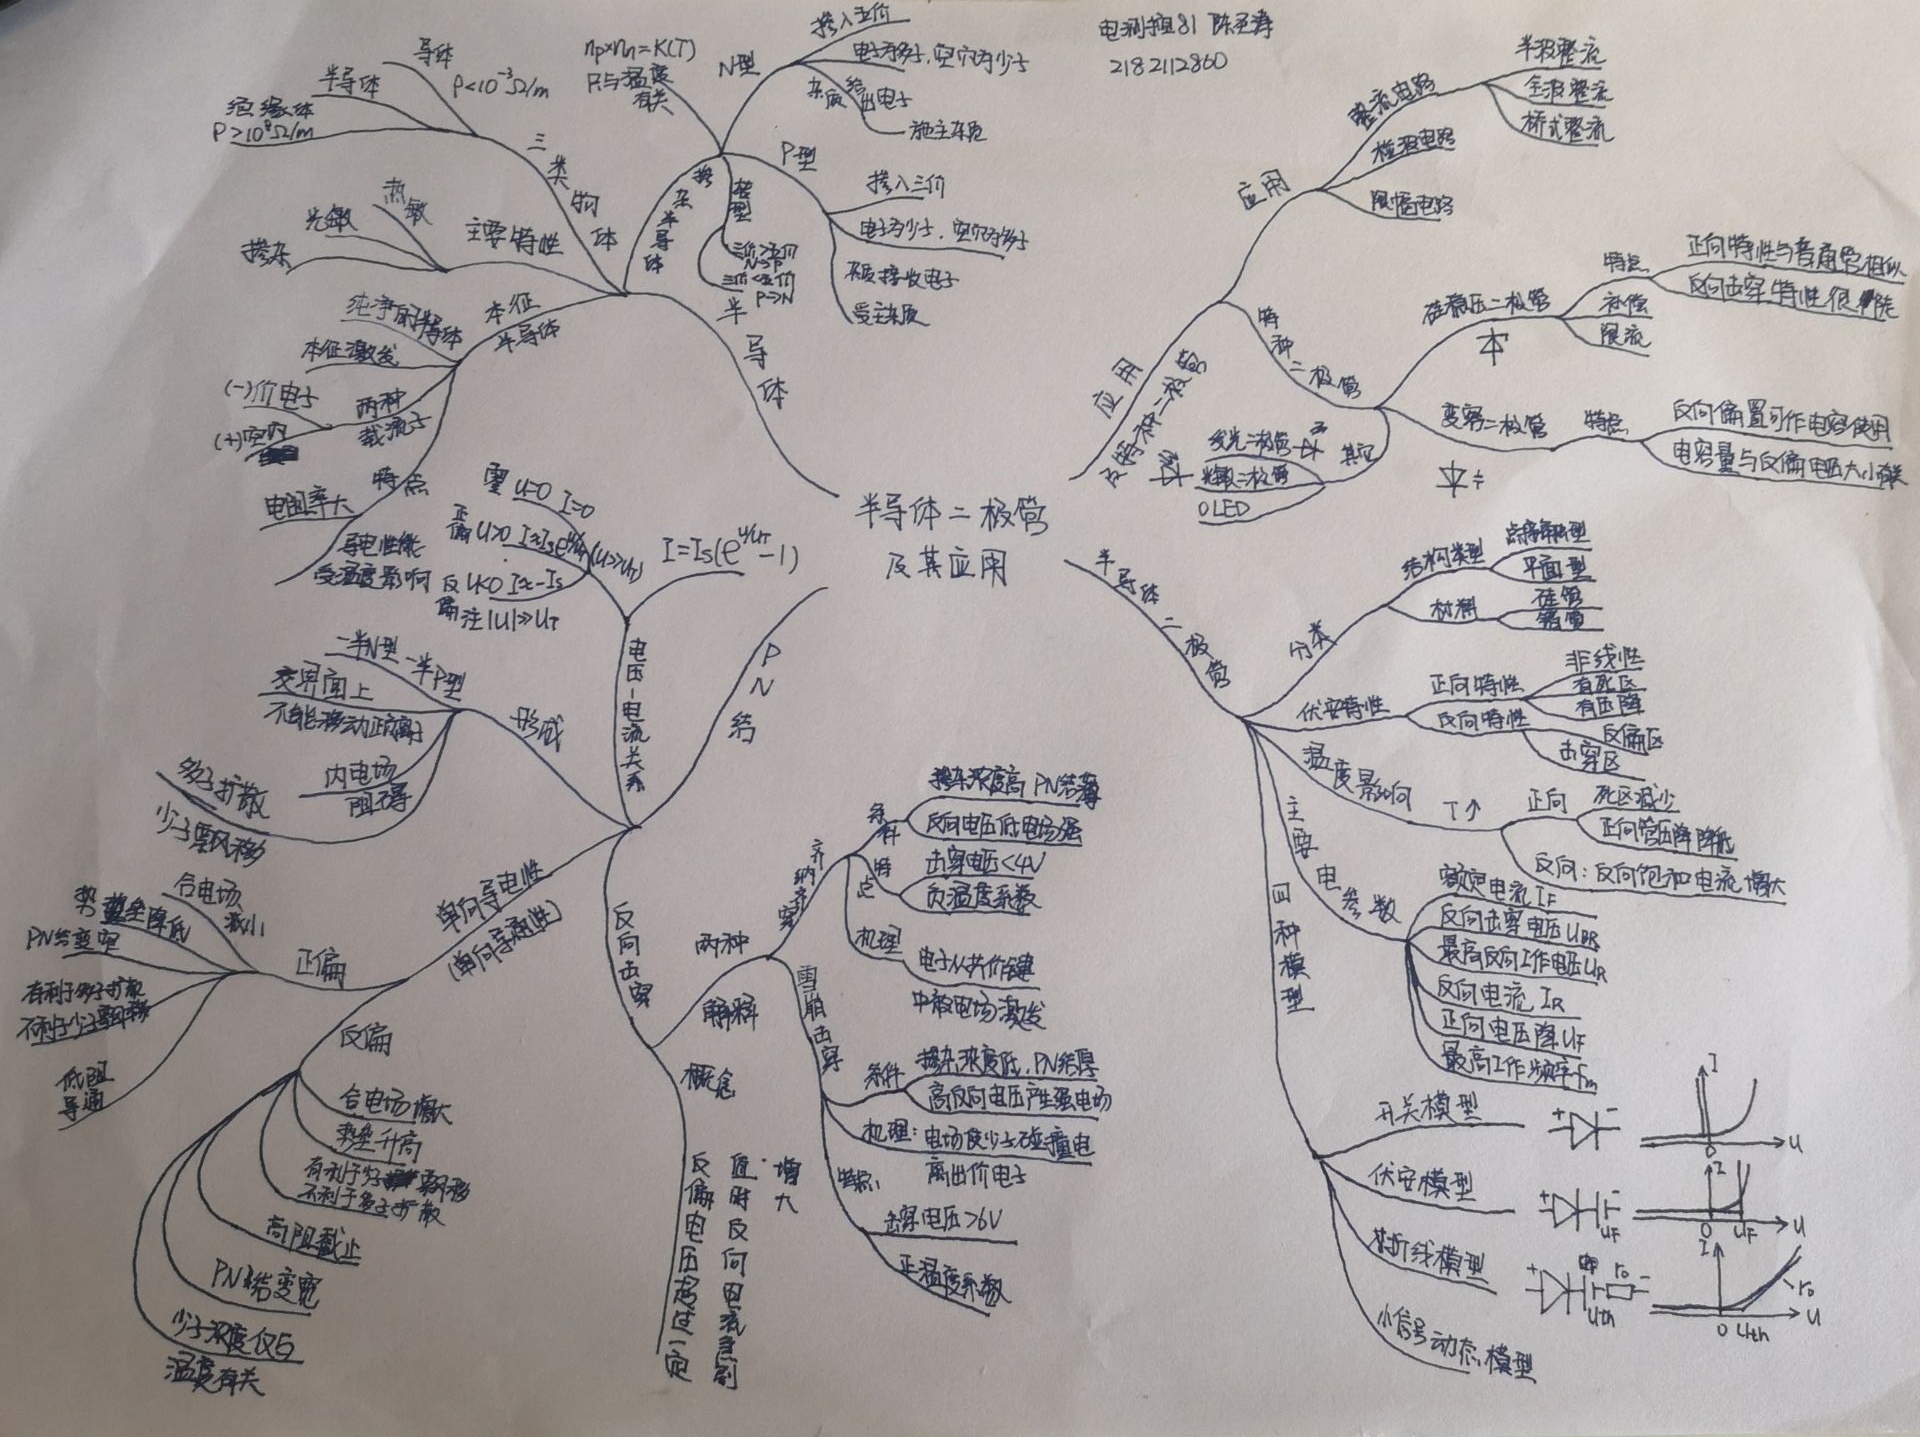 电测控81
2182112860
半导体二极管
及其应用
半导体
三类物体
导体
ρ<10⁻³Ω/m
半导体
绝缘体
ρ>10⁸Ω/m
主要特性
热敏
光敏
掺杂
本征
半导体
纯净的半导体
本征激发
两种
载流子
(-)价电子
(+)空穴
特点
电阻率大
导电性能
受温度影响
掺杂半导体
np×nn=K(T)
只与温度
有关
N型
掺入五价
电子为多子,空穴为少子
杂质给
出电子
施主杂质
P型
掺入三价
电子为少子,空穴为多子
杂质接收电子
受主杂质
转型
三价>五价
N→P
三价<五价
P→N
PN结
电压-电流关系
I=Is(e^u/UT-1)
零 u=0 I=0
正偏 U>0 I≈Is e^u/UT (u>>UT)
反偏 U<0 I≈-Is
注|U|>>UT
形成
一半N型 一半P型
交界面上
不能移动正负离子
内电场
阻碍
多子扩散
少子漂移
单向导电性
(单向导通性)
正偏
合电场
减小
势垒降低
PN结变窄
有利于多子扩散
不利于少子漂移
低阻
导通
反偏
合电场增大
势垒升高
有利于少子漂移
不利于多子扩散
高阻截止
PN结变宽
少子浓度仅与
温度有关
反向击穿
概念
反偏电压超过一定
值时反向电流急剧
增大
两种
解释
齐纳击穿
条件
掺杂浓度高 PN结薄
反向电压低电场强
特点
击穿电压<4V
负温度系数
机理
电子从共价键
中被电场激发
雪崩击穿
条件
掺杂浓度低,PN结厚
高反向电压产生强电场
机理:电场使少子碰撞电
离出价电子
特点:
击穿电压>6V
正温度系数
应用
及特种二极管
应用
整流电路
半波整流
全波整流
桥式整流
检波电路
限幅电路
特种二极管
硅稳压二极管
特点
正向特性与普通管相似
反向击穿特性很陡
补偿
限流
变容二极管
特点
反向偏置可作电容使用
电容量与反偏电压大小有关
其它
发光二极管
光敏二极管
OLED
半导体二极管
分类
结构类型
点接触型
平面型
材料
硅管
锗管
伏安特性
正向特性
非线性
有死区
有压降
反向特性
反偏区
击穿区
温度影响
T↑
正向
死区减少
正向管压降降低
反向:反向饱和电流增大
主要电参数
额定电流IF
反向击穿电压UBR
最高反向工作电压UR
反向电流 IR
正向电压降UF
最高工作频率fm
四种模型
开关模型
+ -
I
0 u
伏安模型
+ -
UF
I
0 UF u
折线模型
+ r₀ -
Uth
I
r₀
0 Uth u
小信号动态模型